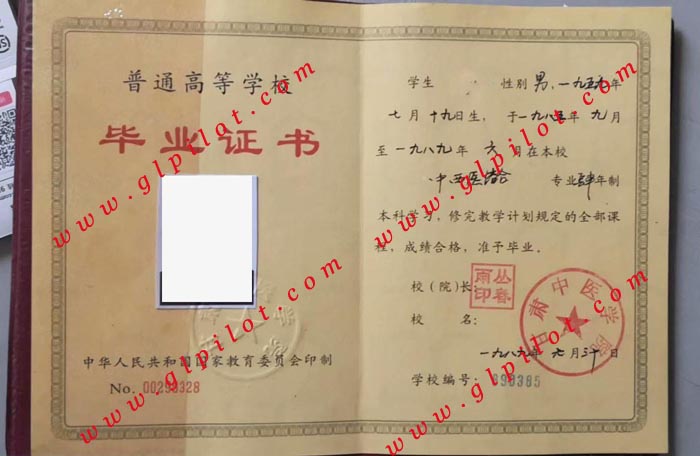 普通高等学校
毕业证书
中华人民共和国国家教育委员会印制
No. 00298328
学生 性别 男,一九五九年
七月十九日生,于一九八五年九月
至一九八九年六月在本校
中西医结合 专业肆年制
本科学习,修完教学计划规定的全部课
程,成绩合格,准予毕业。
校(院)长:
丛春雨印
校 名:
甘肃中医学院
一九八九年六月三十日
学校编号:890385
www.glpilot.com
www.glpilot.com
www.glpilot.com
www.glpilot.com